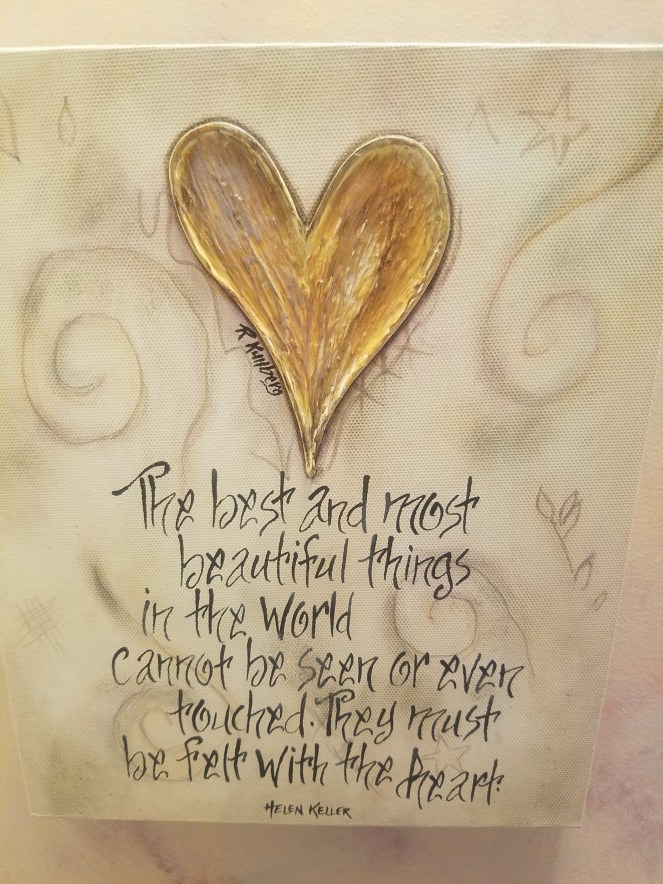 R Kullberg
The best and most
beautiful things
in the world
cannot be seen or even
touched. They must
be felt with the heart.
HELEN KELLER